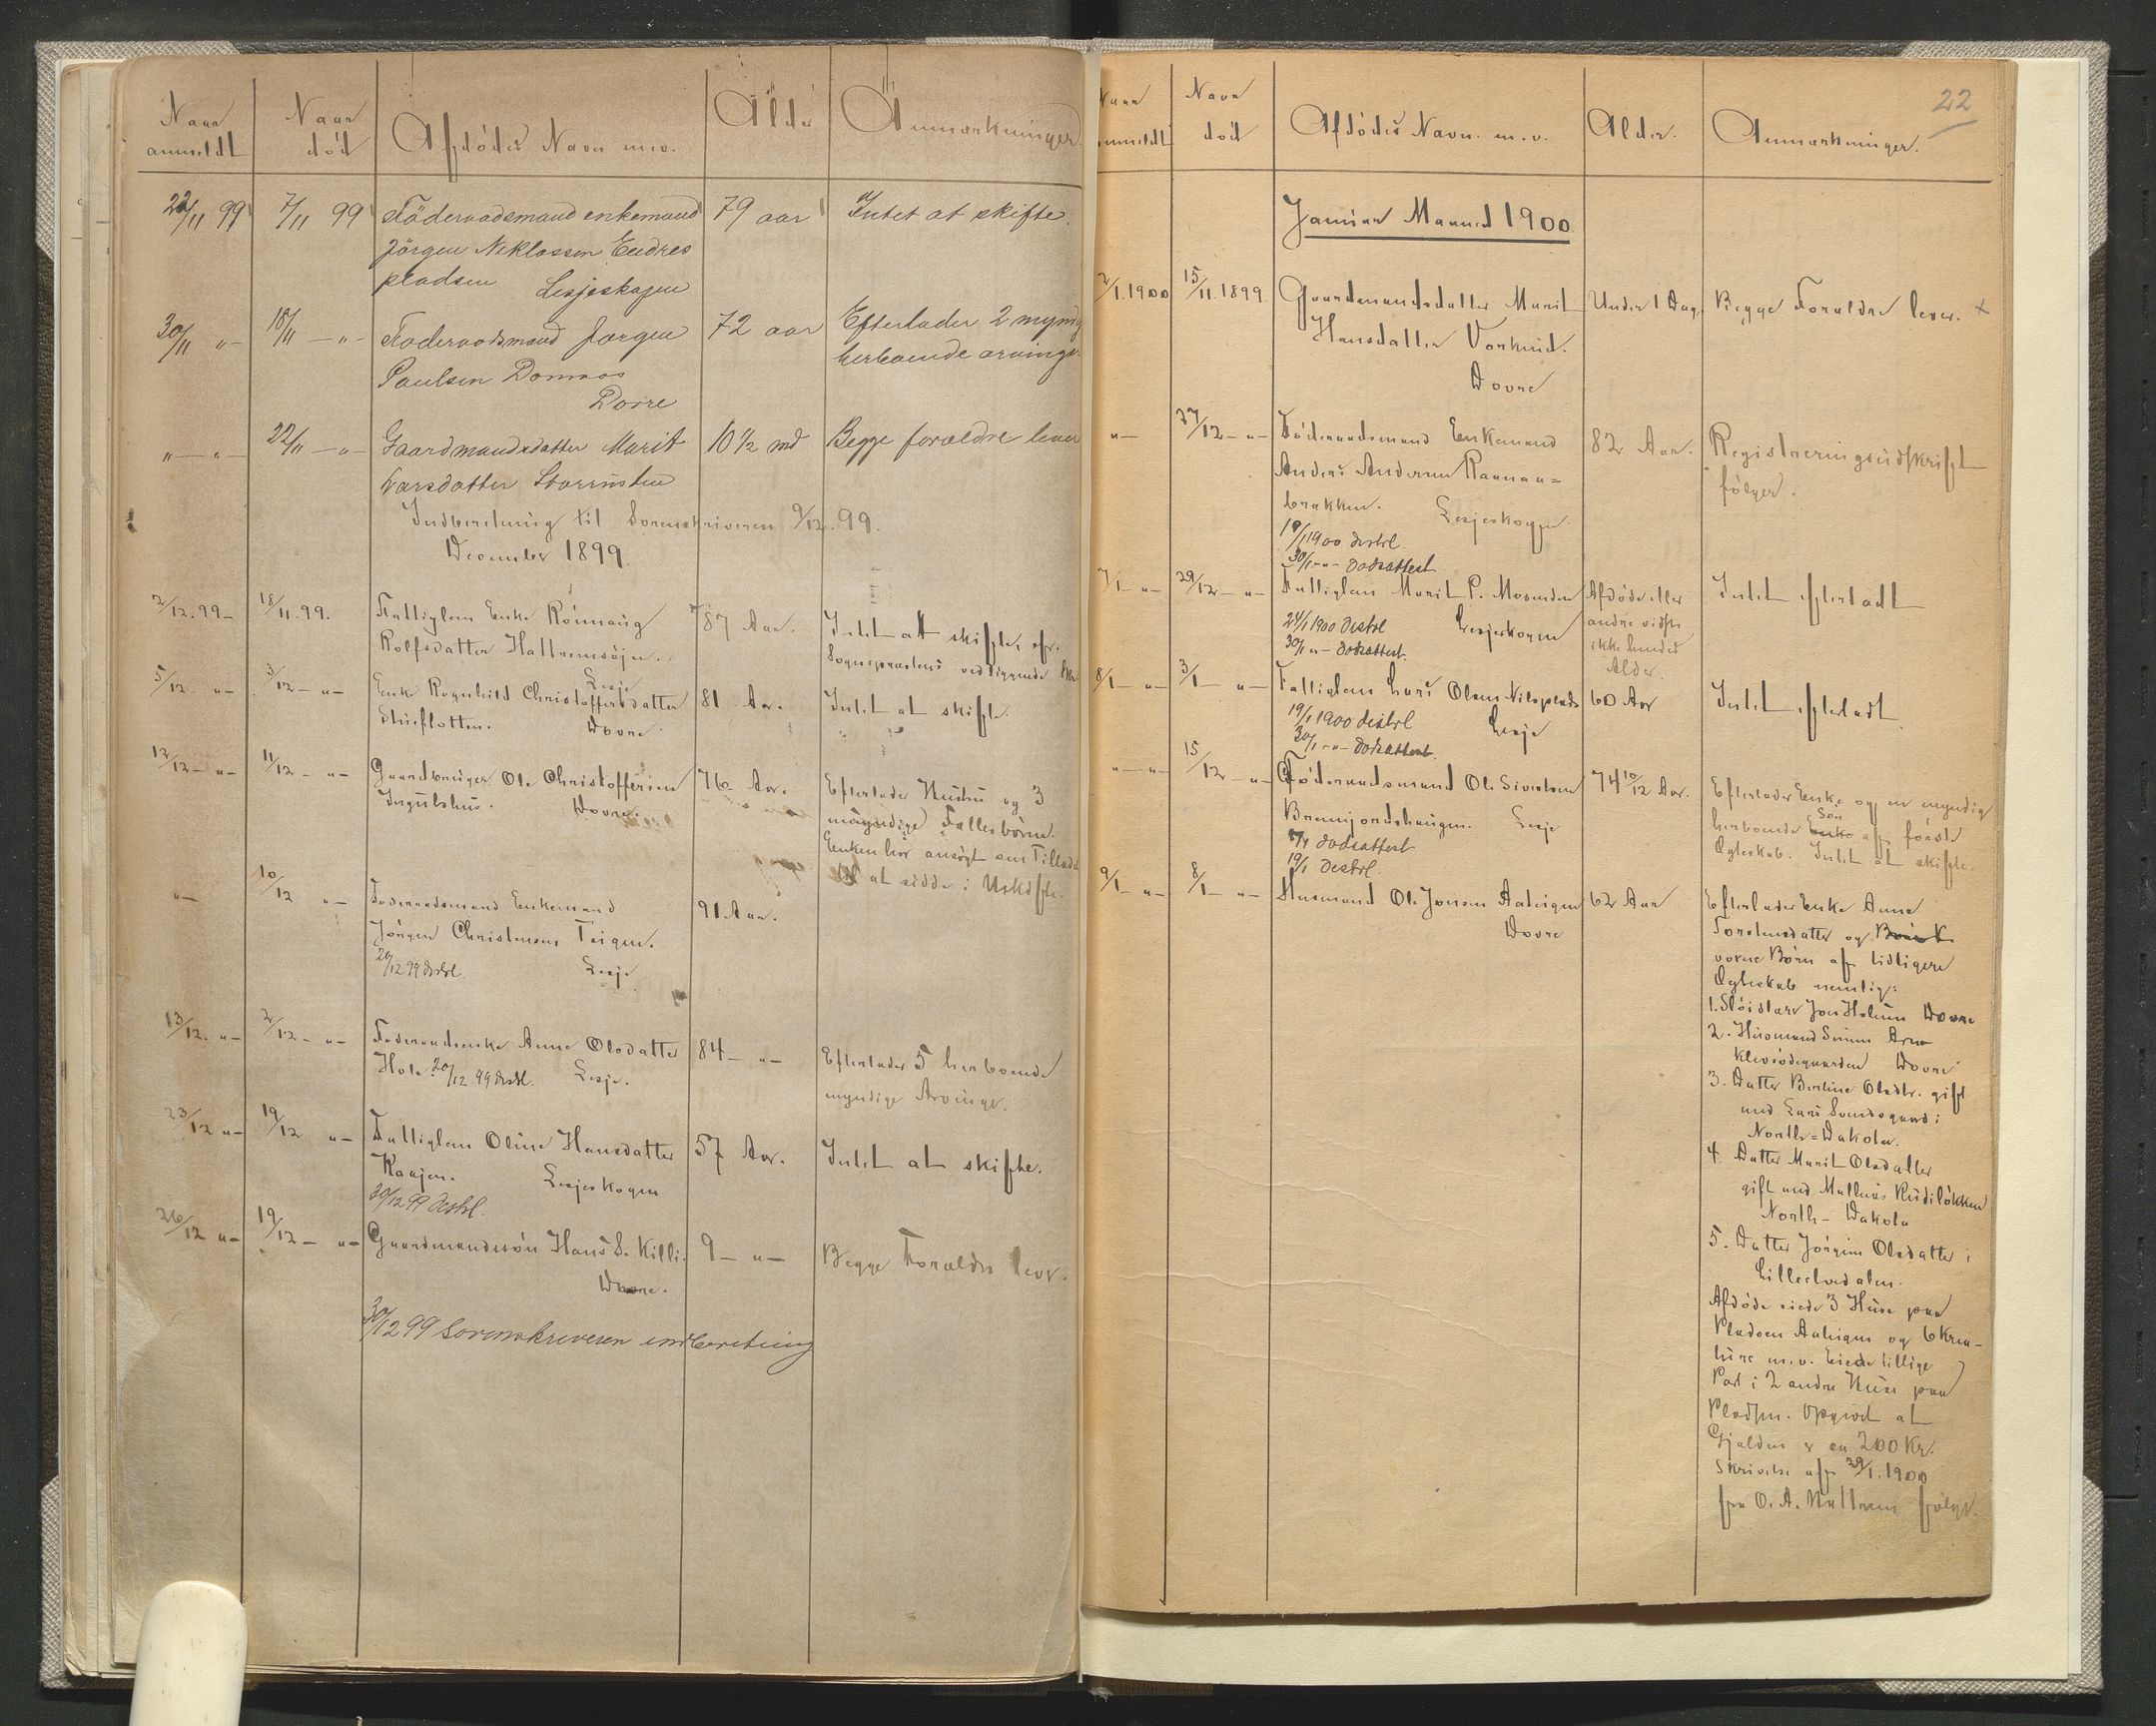 Naar anmeldt
Naar død
Afdødes Navn m.v.
Alder
Anmærkninger.
22/11 99 7/11 99 Föderaadsmand enkemand 79 aar Intet at skifte.
Jörgen Niklassen Endres
pladsen Lesjeskogen
30/11 " - 18/11 - " - Föderaadsmand Jørgen 72 aar Efterlader 2 myndig
Paulsen Dommos herboende arvinger
Dovre
" - " - 22/11 - " - Gaardmandsdatter Marit 10 1/2 md Begge forældre lever
Larsdatter Storrusten
Indberetning til Sorenskriveren 9/12. 99.
December 1899.
2/12. 99 - 18/11. 99. Fattiglem Enke Rönnaug 87 Aar. Intet at skifte, cfr.
Rolfsdatter Hattremsöjn. Sogneprestens vedliggende
Lesje
5/12 - " - 3/12 - " - Enke Ragnhild Christoffersdatter 81 Aar. Intet at skifte.
Stueflotten. Dovre
12/12 - " - 11/12 - " - Gaardbruger Ole Christoffersen 76 Aar. Efterlader Hustru og 3
Ingulshus. Dovre. myndige Fællesbörn.
Enken har ansögt om Tilladel
at sidde i Uskifte.
" - 10/12 " - Föderaadsmand Enkemand 91 Aar.
Jörgen Christensen Teigen.
20/12 99 destrl. Lesje
13/12. " - 2/12 - " - Föderaadsenke Anne Olsdatter 84 - " - Efterlader 5 herboende
Hole. 20/12 99 destrl. Lesje. myndige Arvinger.
23/12 " - 19/12 " - Fattiglem Oline Hansdatter 57 Aar. Intet at skifte.
Kaajen. Lesjeskogen
30/12 99 destrl.
26/12 " - 19/12 - " - Gaardmandssön Hans S. Killi. 9 - " - Begge Forældre lever.
Dovre.
30/12 99 Sorenskriveren indberetning
22
Naar anmeldt
Naar død
Afdødes Navn. m.v.
Alder.
Anmærkninger.
Januar Maaned 1900
2/1. 1900 15/11. 1899. Gaardmandsdatter Marit Under 1 Dag. Begge Forældre lever. x
Hansdatter Vorkind.
Dovre
" - 27/12 - " - Föderaadsmand Enkemand 82 Aar. Registreringsudskrift
Anders Andersen Raanaa= følger.
brækken. Lesjeskogen
19/1 1900 destrl.
30/1 - " - dødsattest
7/1 - " - 29/12 - " - Fattiglem Marit P. Mosenden Afdøde eller Intet efterladt
24/1 1900 destrl Lesjeskogen andre vidste
30/1 " - dødsattest. ikke hendes
Alder.
8/1 - " - 3/1 - " - Fattiglem Lars Olsen Nilsplads 60 Aar Intet efterladt
19/1 1900 destrl Lesje
30/1 - " - dødsattest.
" - " - 15/12 - " - Föderaadsmand Ole Sivertsen 74 10/12 Aar. Efterlader Enke og en myndig
Brennjordshaugen. Lesje herboende Enke Sön af første
9/1 dødsattest Ægteskab. Intet at skifte.
19/1 destrl.
9/1 - " - 8/1 - " - Husmand Ole Jonsen Aateigen 62 Aar Efterlader Enke Anne
Dovre Torstensdatter og
voxne Börn af tidligere
Ægteskab nemlig:
1. Slöidlærer Jon Holum Dovre
2. Husmand Simen Arne
Klevsödegaarden Dovre
3. Datter Berthine Olsdtr. gift
med Lars Sundsgaard i
North=Dakota.
4. Datter Marit Olsdatter
gift med Mathias Rudilökken
North-Dakota
5. Datter Jörgine Olsdatter i
Lilleelvedalen.
Afdøde eiede 3 Huse paa
Pladsen Aateigen og 6 Krea-
türe m.v. Eiede tillige
Part i 2 andre Huse paa
Pladsen. Opgivet at
Gjælden er ca 200 Kr.
Skrivelse af 29/1. 1900
fra O. A. Hattrem følger.